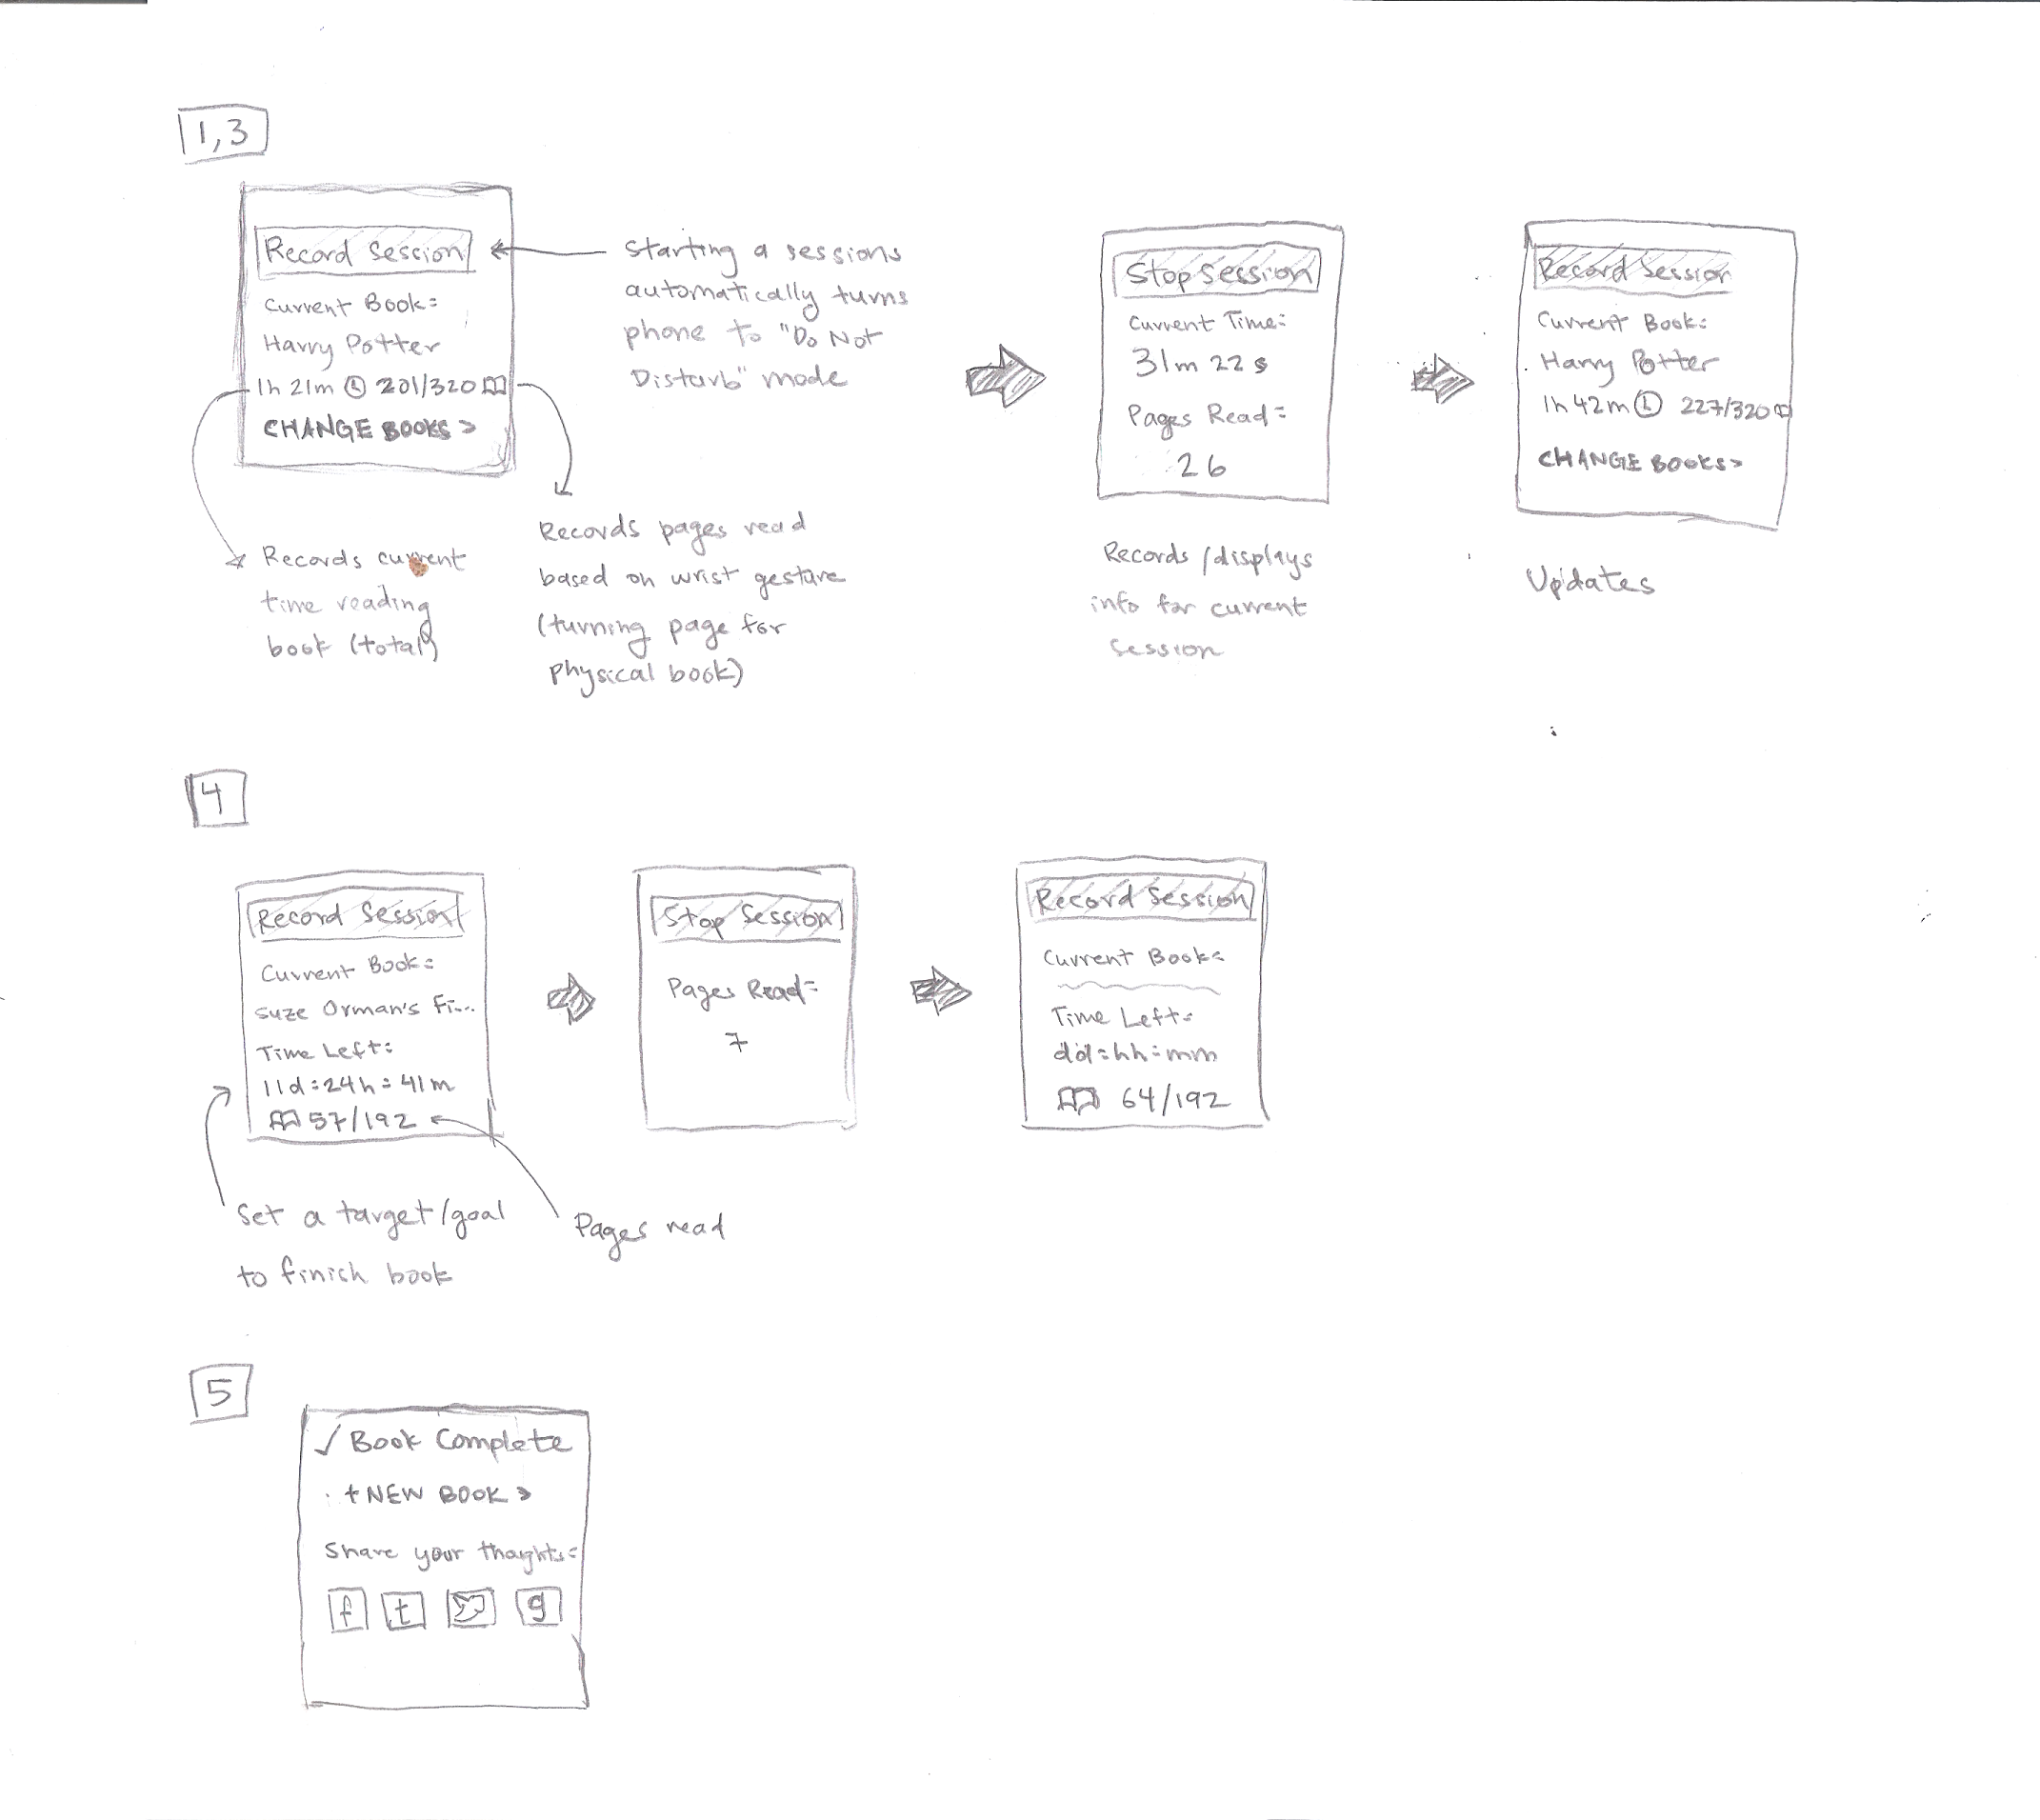 1,3
Record Session
Current Book:
Harry Potter
1h 21m 201/320
CHANGE BOOKS >
Starting a sessions
automatically turns
phone to "Do Not
Disturb" mode
Records current
time reading
book (total)
Records pages read
based on wrist gesture
(turning page for
physical book)
Stop Session
Current Time:
31m 22s
Pages Read:
26
Records/displays
info for current
session
Record Session
Current Book:
Harry Potter
1h 42m 227/320
CHANGE BOOKS >
Updates
4
Record Session
Current Book:
Suze Orman's Fi...
Time Left:
11d:24h:41m
57/192
Set a target/goal
to finish book
Pages read
Stop Session
Pages Read:
7
Record Session
Current Book:
Time Left:
dd:hh:mm
64/192
5
✓ Book Complete
+ NEW BOOK >
Share your thoughts:
f t g